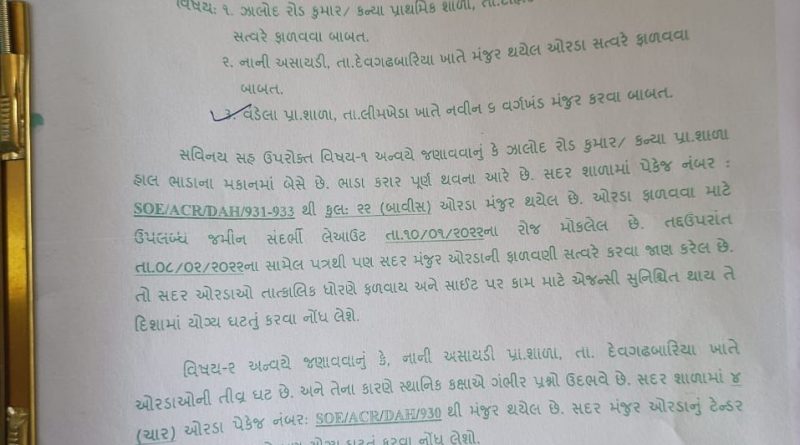 વિષય: ૧. ઝાલોદ રોડ કુમાર/ કન્યા પ્રાથમિક શાળા,
સત્વરે ફાળવવા બાબત.
૨. નાની અસાયડી, તા.દેવગઢબારિયા ખાતે મંજુર થયેલ ઓરડા સત્વરે ફાળવવા
બાબત.
૩. વડેલા પ્રા.શાળા, તા.લીમખેડા ખાતે નવીન ૬ વર્ગખંડ મંજુર કરવા બાબત.
સવિનય સહ ઉપરોક્ત વિષય-૧ અન્વયે જણાવવાનું કે ઝાલોદ રોડ કુમાર/ કન્યા પ્રા.શાળા
હાલ ભાડાના મકાનમાં બેસે છે. ભાડા કરાર પૂર્ણ થવના આરે છે. સદર શાળામાં પેકેજ નંબર :
SOE/ACR/DAH/931-933 થી કુલ: ૨૨ (બાવીસ) ઓરડા મંજુર થયેલ છે. ઓરડા ફાળવવા માટે
ઉપલબ્ધ જમીન સંદર્ભી લેઆઉટ તા.૧૦/૦૧/૨૦૨૨ના રોજ મોકલેલ છે. તદ્દઉપરાંત
તા.૦૮/૦૨/૨૦૨૨ના સામેલ પત્રથી પણ સદર મંજુર ઓરડાની ફાળવણી સત્વરે કરવા જાણ કરેલ છે.
તો સદર ઓરડાઓ તાત્કાલિક ધોરણે ફળવાય અને સાઈટ પર કામ માટે એજન્સી સુનિશ્ચિત થાય તે
દિશામાં યોગ્ય ઘટતું કરવા નોંધ લેશો.
વિષય-૨ અન્વયે જણાવવાનું કે, નાની અસાયડી પ્રા.શાળા, તા. દેવગઢબારિયા ખાતે
ઓરડાઓની તીવ્ર ઘટ છે. અને તેના કારણે સ્થાનિક કક્ષાએ ગંભીર પ્રશ્નો ઉદભવે છે. સદર શાળામાં ૪
(ચાર) ઓરડા પેકેજ નંબર: SOE/ACR/DAH/930 થી મંજુર થયેલ છે. સદર મંજુર ઓરડાનું ટેન્ડર
યોગ્ય ઘટતું કરવા નોંધ લેશો.